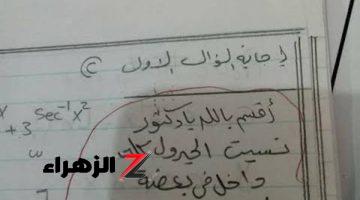 إجابة السؤال الأول
x
+ 3 sec⁻¹x²
أقسم بالله يا دكتور
نسيت الجدول كله
داخل في بعضه
الزهراء